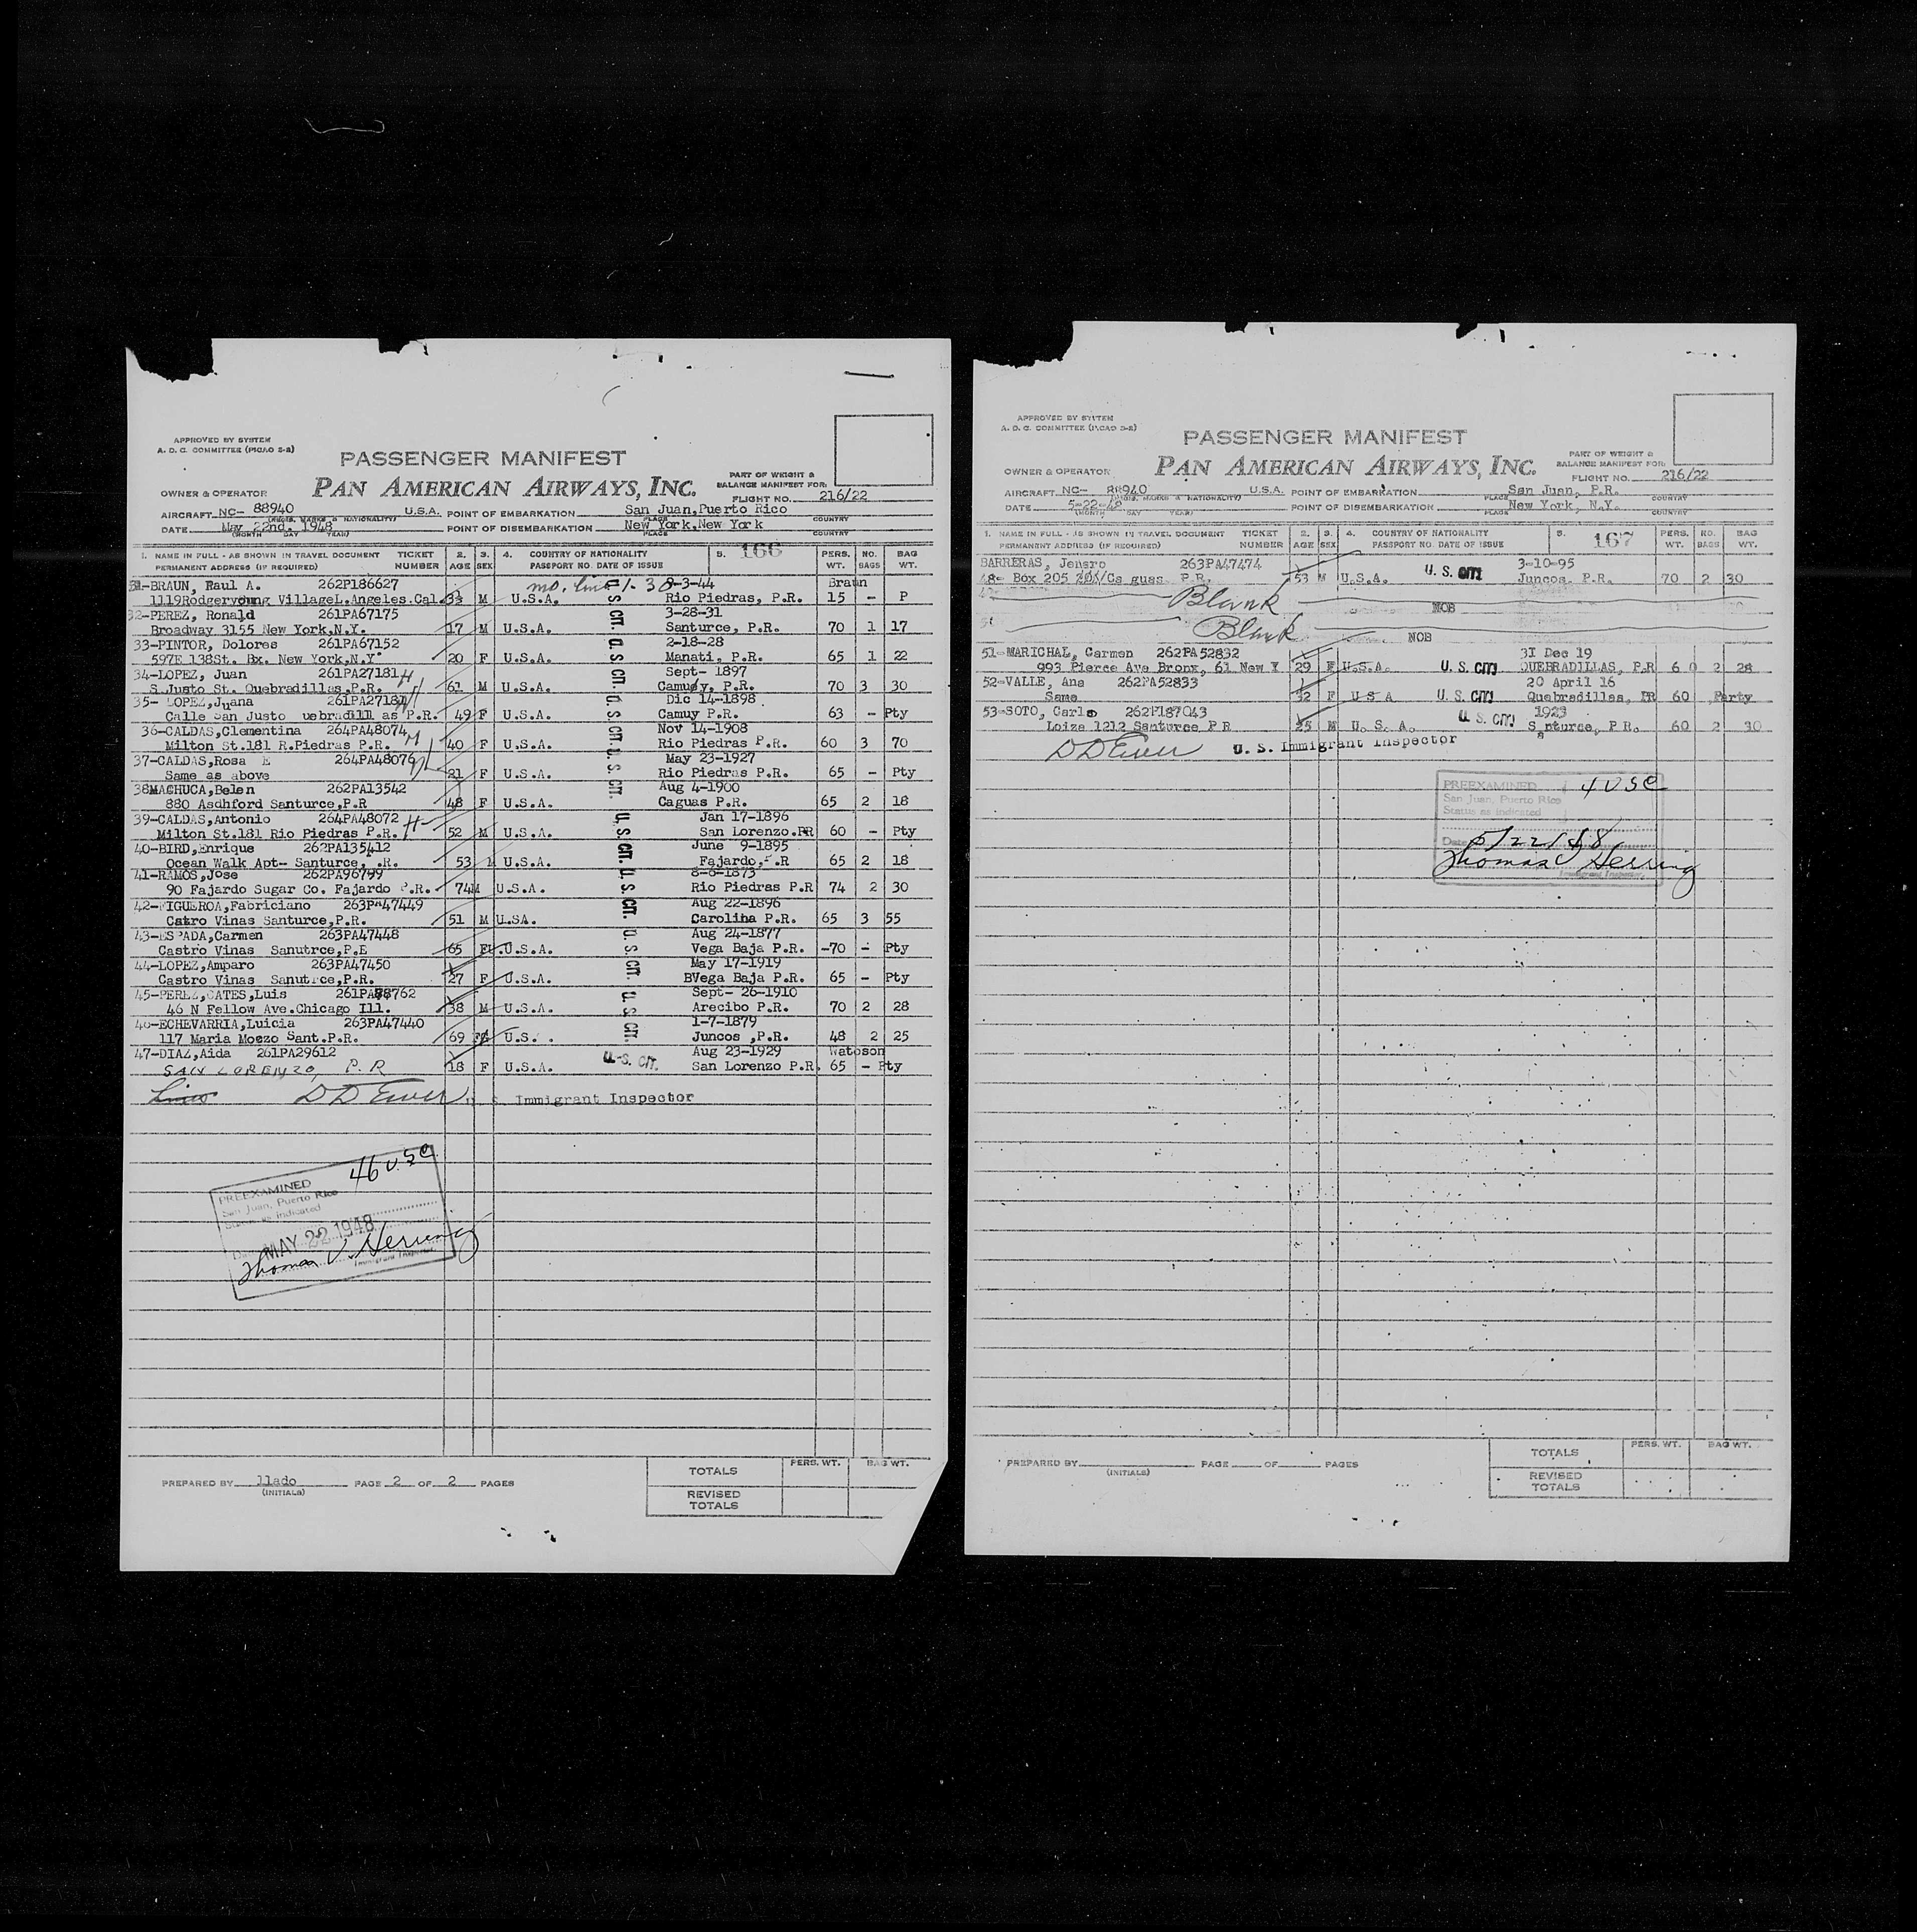 APPROVED BY SYSTEM
A. D. C. COMMITTEE (PICAO S-2)
PASSENGER MANIFEST
PAN AMERICAN AIRWAYS, INC.
PART OF WEIGHT &
BALANCE MANIFEST FOR:
OWNER & OPERATOR
FLIGHT NO. 216/22
AIRCRAFT NC- 88940 U.S.A. POINT OF EMBARKATION San Juan,Puerto Rico
DATE May 22nd. 1948 POINT OF DISEMBARKATION New York,New York
(MONTH DAY YEAR) PLACE COUNTRY
1. NAME IN FULL - AS SHOWN IN TRAVEL DOCUMENT TICKET 2. 3. 4. COUNTRY OF NATIONALITY 5. 166 PERS. NO. BAG
PERMANENT ADDRESS (IF REQUIRED) NUMBER AGE SEX PASSPORT NO. DATE OF ISSUE WT. BAGS WT.
31-BRAUN, Raul A. 262P186627 -3-44 Braun
1119Rodgeryoung VillageL.Angeles.Cal. M U.S.A. Rio Piedras, P.R. 15 - P
32-PEREZ, Ronald 261PA67175 3-28-31
Broadway 3155 New York,N.Y. 17 M U.S.A. Santurce, P.R. 70 1 17
33-PINTOR, Dolores 261PA67152 2-18-28
597E 138St. Bx. New York,N.Y. 20 F U.S.A. Manati, P.R. 65 1 22
34-LOPEZ, Juan 261PA27181 Sept- 1897
S.Justo St. Quebradillas,P.R. 61 M U.S.A. Camuy, P.R. 70 3 30
35- LOPEZ,Juana 261PA27181 Dic 14-1898
Calle San Justo uebradill as P.R. 49 F U.S.A. Camuy P.R. 63 - Pty
36-CALDAS,Clementina 264PA48074 Nov 14-1908
Milton St.181 R.Piedras P.R. 40 F U.S.A. Rio Piedras P.R. 60 3 70
37-CALDAS,Rosa E 264PA48076 May 23-1927
Same as above 21 F U.S.A. Rio Piedras P.R. 65 - Pty
38MACHUCA,Belen 262PA13542 Aug 4-1900
880 Asdhford Santurce,P.R 48 F U.S.A. Caguas P.R. 65 2 18
39-CALDAS,Antonio 264PA48072 Jan 17-1896
Milton St.181 Rio Piedras P.R. 52 M U.S.A. San Lorenzo.PR 60 - Pty
40-BIRD,Enrique 262PA135412 June 9-1895
Ocean Walk Apt- Santurce, .R. 53 U.S.A. Fajardo,P.R 65 2 18
41-RAMOS,Jose 262PA96799 8-6-1873
90 Fajardo Sugar Co. Fajardo P.R. 74M U.S.A. Rio Piedras P.R 74 2 30
42-FIGUEROA,Fabriciano 263PA47449 Aug 22-1896
Catro Vinas Santurce,P.R. 51 M U.SA. Carolina P.R. 65 3 55
43-ESPADA,Carmen 263PA47448 Aug 24-1877
Castro Vinas Sanutrce,P.E 65 F U.S.A. Vega Baja P.R. -70 - Pty
44-LOPEZ,Amparo 263PA47450 May 17-1919
Castro Vinas Sanutrce,P.R. 27 F U.S.A. BVega Baja P.R. 65 - Pty
45-PEREZ,OATES,Luis 261PA88762 Sept- 26-1910
46 N Fellow Ave.Chicago Ill. 38 M U.S.A. Arecibo P.R. 70 2 28
46-ECHEVARRIA,Luicia 263PA47440 1-7-1879
117 Maria Moezo Sant.P.R. 69 F U.S. . Juncos ,P.R. 48 2 25
47-DIAZ,Aida 261PA29612 Aug 23-1929 Watoson
SAN LORENZO, P.R 18 F U.S.A. U.S. CIT. San Lorenzo P.R. 65 - Pty
D D Ewer U. S. Immigrant Inspector
46 USC
PREEXAMINED
San Juan, Puerto Rico
Status as indicated
Date MAY 22 1948
Thomas V. Herring
Immigrant Inspector
PREPARED BY llado PAGE 2 OF 2 PAGES
(INITIALS)
TOTALS PERS. WT. BAG WT.
REVISED
TOTALS
APPROVED BY SYSTEM
A. D. C. COMMITTEE (PICAO S-2)
PASSENGER MANIFEST
PAN AMERICAN AIRWAYS, INC.
PART OF WEIGHT &
BALANCE MANIFEST FOR:
OWNER & OPERATOR
FLIGHT NO. 216/22
AIRCRAFT NC- 88940 U.S.A. POINT OF EMBARKATION San Juan, P.R.
DATE 5-22-48 POINT OF DISEMBARKATION New York, N.Y.
(MONTH DAY YEAR) PLACE COUNTRY
1. NAME IN FULL - AS SHOWN IN TRAVEL DOCUMENT TICKET 2. 3. 4. COUNTRY OF NATIONALITY 5. 167 PERS. NO. BAG
PERMANENT ADDRESS (IF REQUIRED) NUMBER AGE SEX PASSPORT NO. DATE OF ISSUE WT. BAGS WT.
BARRERAS, Jenaro 263PA47474 3-10-95
48- Box 205 Caguas P.R. 53 M U.S.A. U.S. CIT Juncos, P.R. 70 2 30
Blank NOB
Blank NOB
51-MARICHAL, Carmen 262PA52832 31 Dec 19
993 Pierce Ave Bronx, 61 New Y 29 F U.S.A. U.S. CIT QUEBRADILLAS, P.R 60 2 28
52-VALLE, Ana 262PA52833 20 April 16
Same 32 F U S A U.S. CIT Quebradillas, PR 60 Party
53-SOTO, Carlo 262P187043 1923
Loiza 1212 Santurce P R 25 M U. S. A. U.S. CIT Santurce, P R. 60 2 30
D D Ewer U. S. Immigrant Inspector
4 USC
PREEXAMINED
San Juan, Puerto Rico
Status as indicated
Date 5/22/48
Thomas V Herring
Immigrant Inspector
PREPARED BY PAGE OF PAGES
(INITIALS)
TOTALS PERS. WT. BAG WT.
REVISED
TOTALS